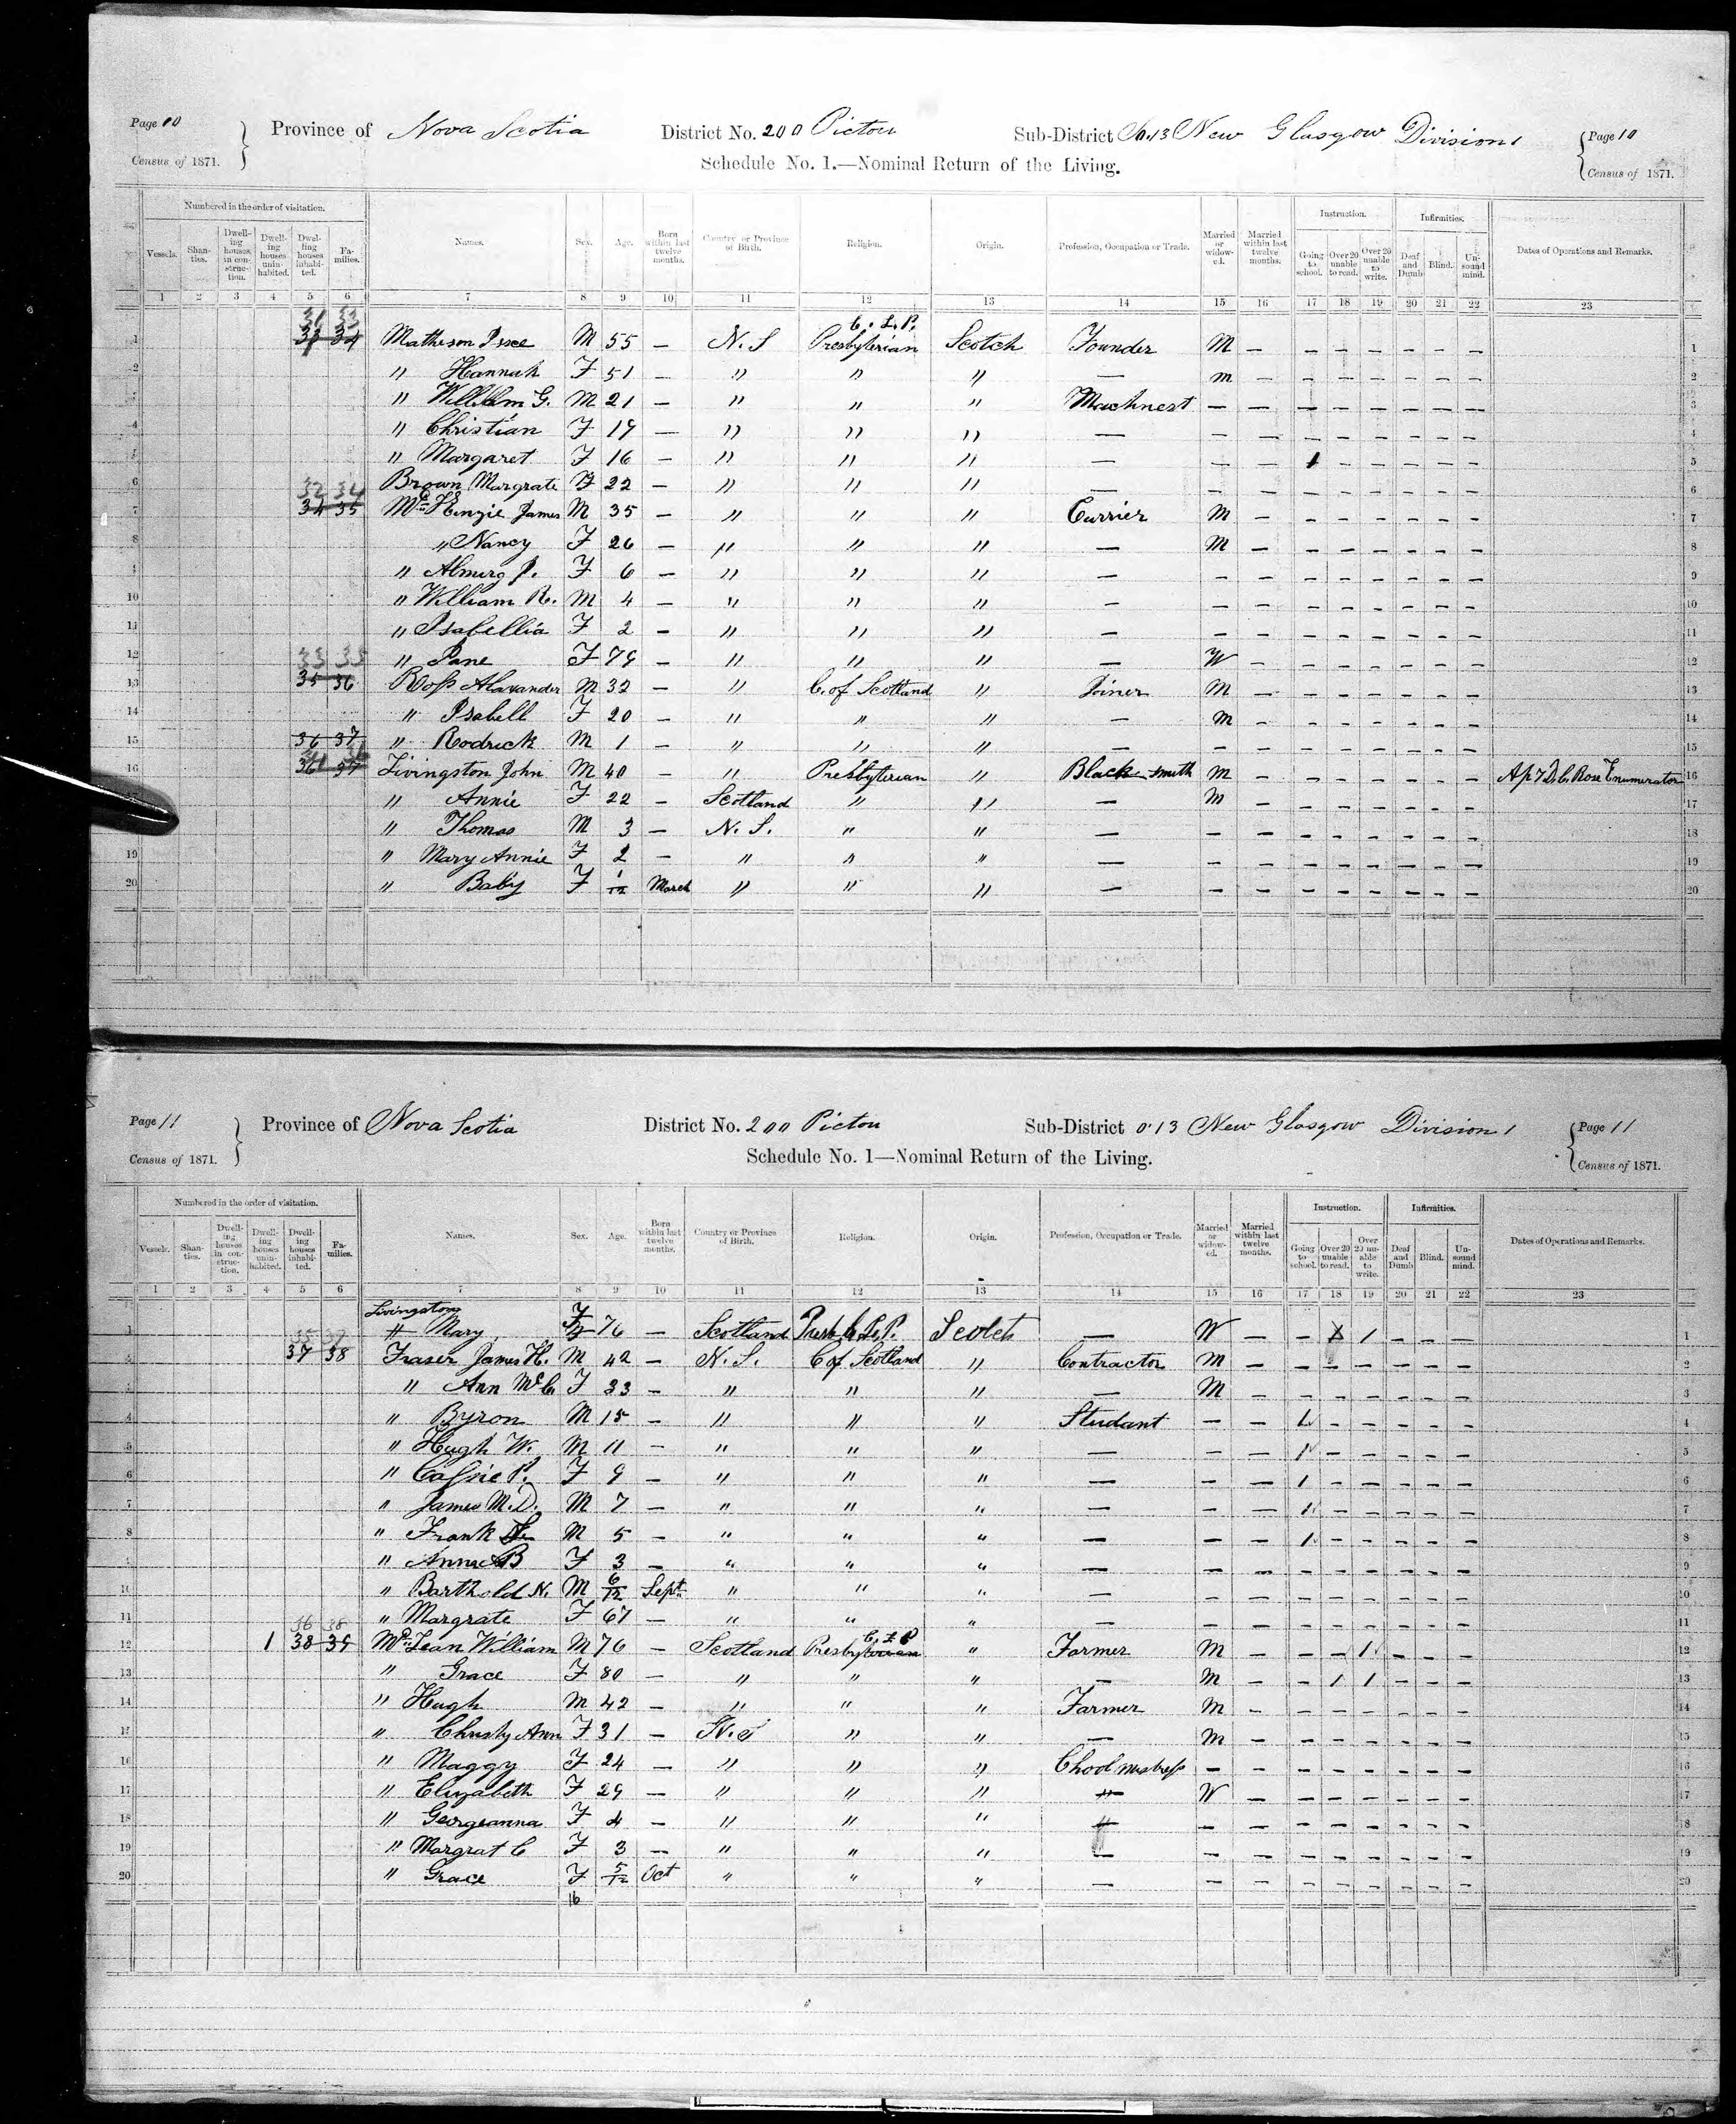 Page 10 Province of Nova Scotia District No. 200 Pictou Sub-District O.13 New Glasgow Division 1 Page 10
Census of 1871. Schedule No. 1.—Nominal Return of the Living. Census of 1871.
Numbered in the order of visitation. Instruction. Infirmities.
Vessels. Shan-ties. Dwell-ing houses in con-struc-tion. Dwell-ing houses unin-habited. Dwel-ling houses inhabi-ted. Fa-milies. Names. Sex. Age. Born within last twelve months. Country or Province of Birth. Religion. Origin. Profession, Occupation or Trade. Married or widow-ed. Married within last twelve months. Going to school. Over 20 unable to read. Over 20 unable to write. Deaf and Dumb Blind. Un-sound mind. Dates of Operations and Remarks.
1 2 3 4 5 6 7 8 9 10 11 12 13 14 15 16 17 18 19 20 21 22 23
31 33 C. L. P.
1 33 34 Matheson M 55 — N. S Presbyterian Scotch Founder M — — — — — — — 1
2 " Hannah F 51 — " " " — m — — — — — — — 2
3 " William G. M 21 — " " " Machnest — — — — — — — — 3
4 " Christian F 19 — " " " — — — — — — — — — 4
5 " Margaret F 16 — " " " — — — 1 — — — — — 5
6 Brown Margrate F 22 — " " " — — — — — — — — — 6
32 34
7 34 35 McKenzie James M 35 — " " " Currier M — — — — — — — 7
8 " Nancy F 26 — " " " — M — — — — — — — 8
9 " J. F 6 — " " " — — — — — — — — — 9
10 " William R. M 4 — " " " — — — — — — — — — 10
11 " Isabellia F 2 — " " " — — — — — — — — — 11
12 " Jane F 79 — " " " — W — — — — — — — 12
33 35
13 35 36 Ross Alaxander M 32 — " C. of Scotland " Joiner M — — — — — — — 13
14 " Isabell F 20 — " " " — M — — — — — — — 14
15 36 37 " Rodrick M 1 — " " " — — — — — — — — — 15
34 36
16 36 37 Livingston John M 40 — " Presbyterian " Black smith M — — — — — — — Ap 7 D. C. Rose Enumerator 16
" Annie F 22 — Scotland " " — M — — — — — — — 17
" Thomas M 3 — N. S. " " — — — — — — — — — 18
19 " Mary Annie F 2 — " " " — — — — — — — — — 19
20 " Baby F 1/12 March " " " — — — — — — — — — 20
Page 11 Province of Nova Scotia District No. 200 Pictou Sub-District O.13 New Glasgow Division 1 Page 11
Census of 1871. Schedule No. 1—Nominal Return of the Living. Census of 1871.
Numbered in the order of visitation. Instruction. Infirmities.
Vessels. Shan-ties. Dwell-ing houses in con-struc-tion. Dwell-ing houses unin-habited. Dwell-ing houses inhabi-ted. Fa-milies. Names. Sex. Age. Born within last twelve months. Country or Province of Birth. Religion. Origin. Profession, Occupation or Trade. Married or widow-ed. Married within last twelve months. Going to school. Over 20 unable to read. Over 20 un-able to write. Deaf and Dumb Blind. Un-sound mind. Dates of Operations and Remarks.
1 2 3 4 5 6 7 8 9 10 11 12 13 14 15 16 17 18 19 20 21 22 23
Livingstone
1 " Mary F 76 — Scotland Presb C. L. P. Scotch — W — — 1 1 — — — 1
35 37
37 38 Fraser James H. M 42 — N. S. C of Scotland " Contractor M — — — — — — — 2
" Ann McC. F 33 — " " " — M — — — — — — — 3
4 " Byron M 15 — " " " Studant — — 1 — — — — — 4
5 " Hugh W. M 11 — " " " — — — 1 — — — — — 5
6 " Cassie P. F 9 — " " " — — — 1 — — — — — 6
7 " James M. D. M 7 — " " " — — — 1 — — — — — 7
8 " Frank M 5 — " " " — — — 1 — — — — — 8
" Anna B F 3 — " " " — — — — — — — — — 9
10 " Barthold N. M 6/12 Sept. " " " — — — — — — — — — 10
11 " Margrate F 67 — " " " — — — — — — — — — 11
36 38 C. L. P
12 1 38 39 McLean William M 76 — Scotland Presbyterian " Farmer M — — — 1 — — — 12
13 " Grace F 80 — " " " — M — — 1 1 — — — 13
14 " Hugh M 42 — " " " Farmer M — — — — — — — 14
15 " Christy Ann F 31 — N. S " " — M — — — — — — — 15
16 " Maggy F 24 — " " " Chool mistress — — — — — — — — 16
17 " Elizabeth F 29 — " " " " W — — — — — — — 17
18 " Georgeanna F 4 — " " " " — — — — — — — — 18
19 " Margrat C F 3 — " " " — — — — — — — — — 19
20 " Grace F 5/12 Oct " " " — — — — — — — — — 20
16